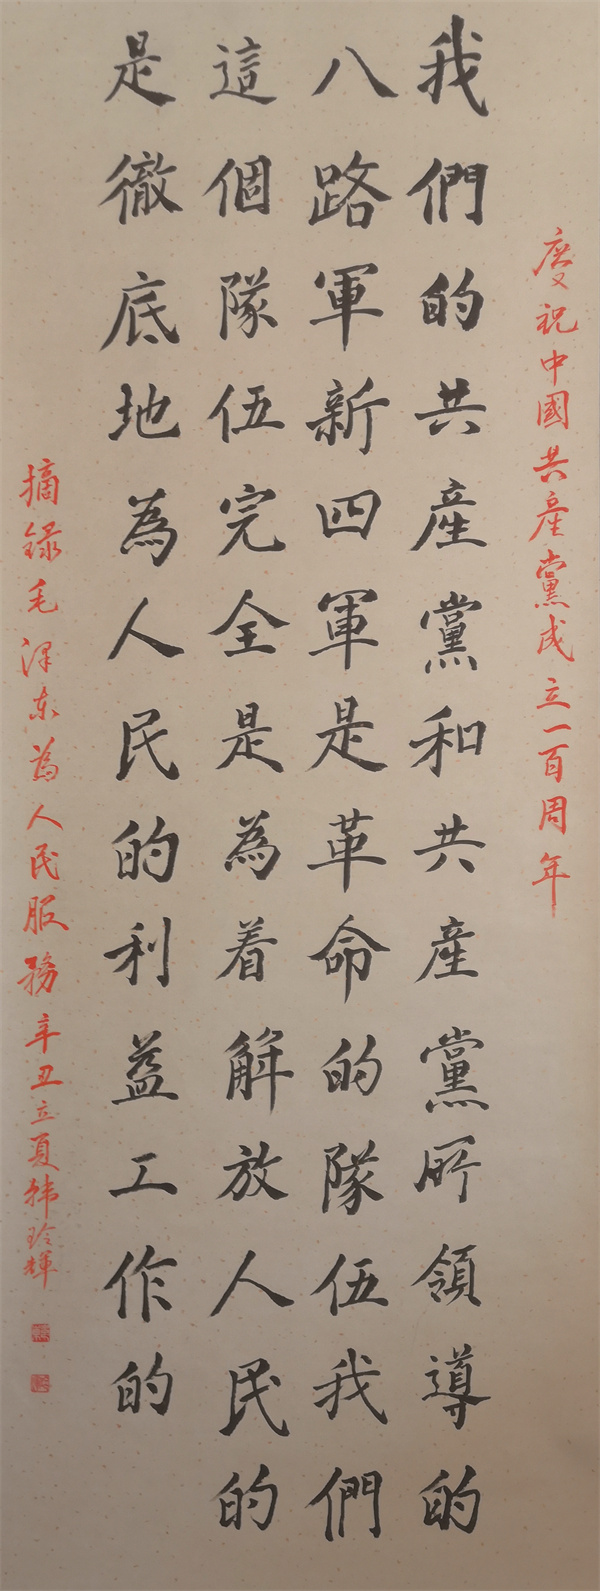 慶祝中國共産黨成立一百周年
我們的共産黨和共産黨所領導的
八路軍新四軍是革命的隊伍我們
這個隊伍完全是為着解放人民的
是徹底地為人民的利益工作的
摘録毛澤东為人民服務辛丑立夏韩玲輝